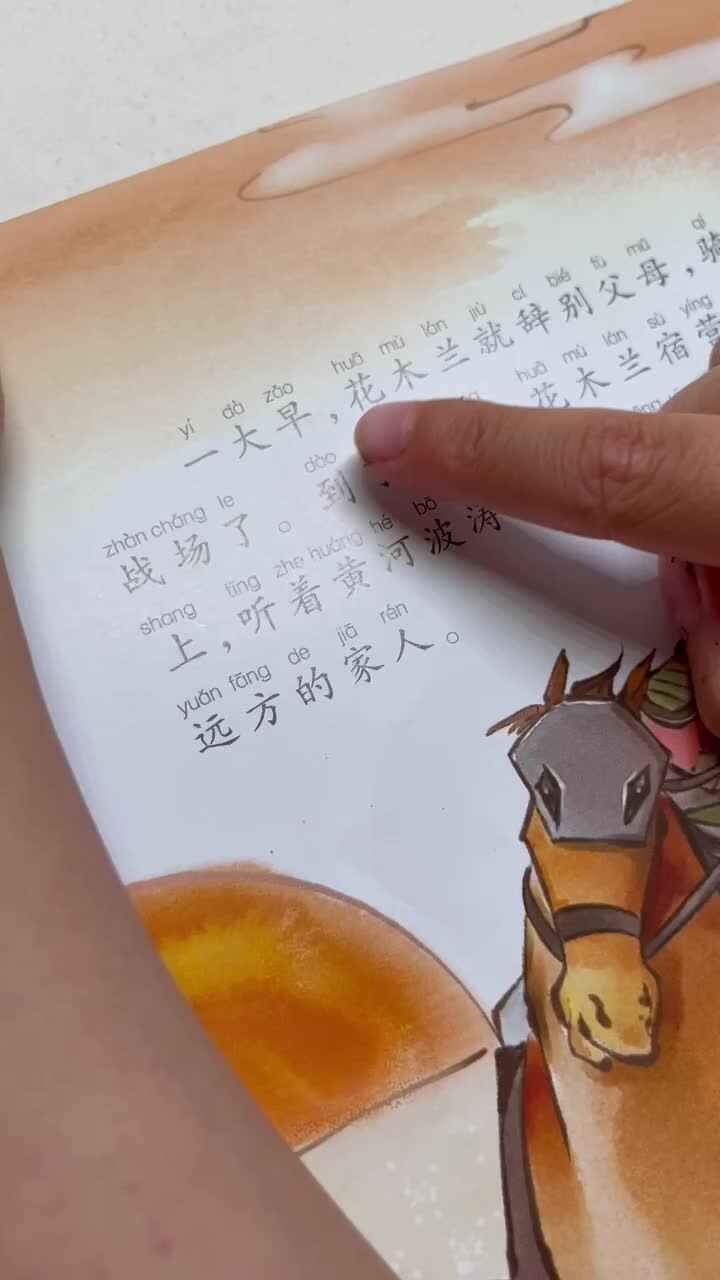 yí dà zǎo huā mù lán jiù cí bié fù mǔ qí
一大早，花木兰就辞别父母，骑
huā mù lán sù yíng
花木兰宿营
zhàn chǎng le dào
战场了。到
shang tīng zhe huáng hé bō
上，听着黄河波涛
yuǎn fāng de jiā rén
远方的家人。